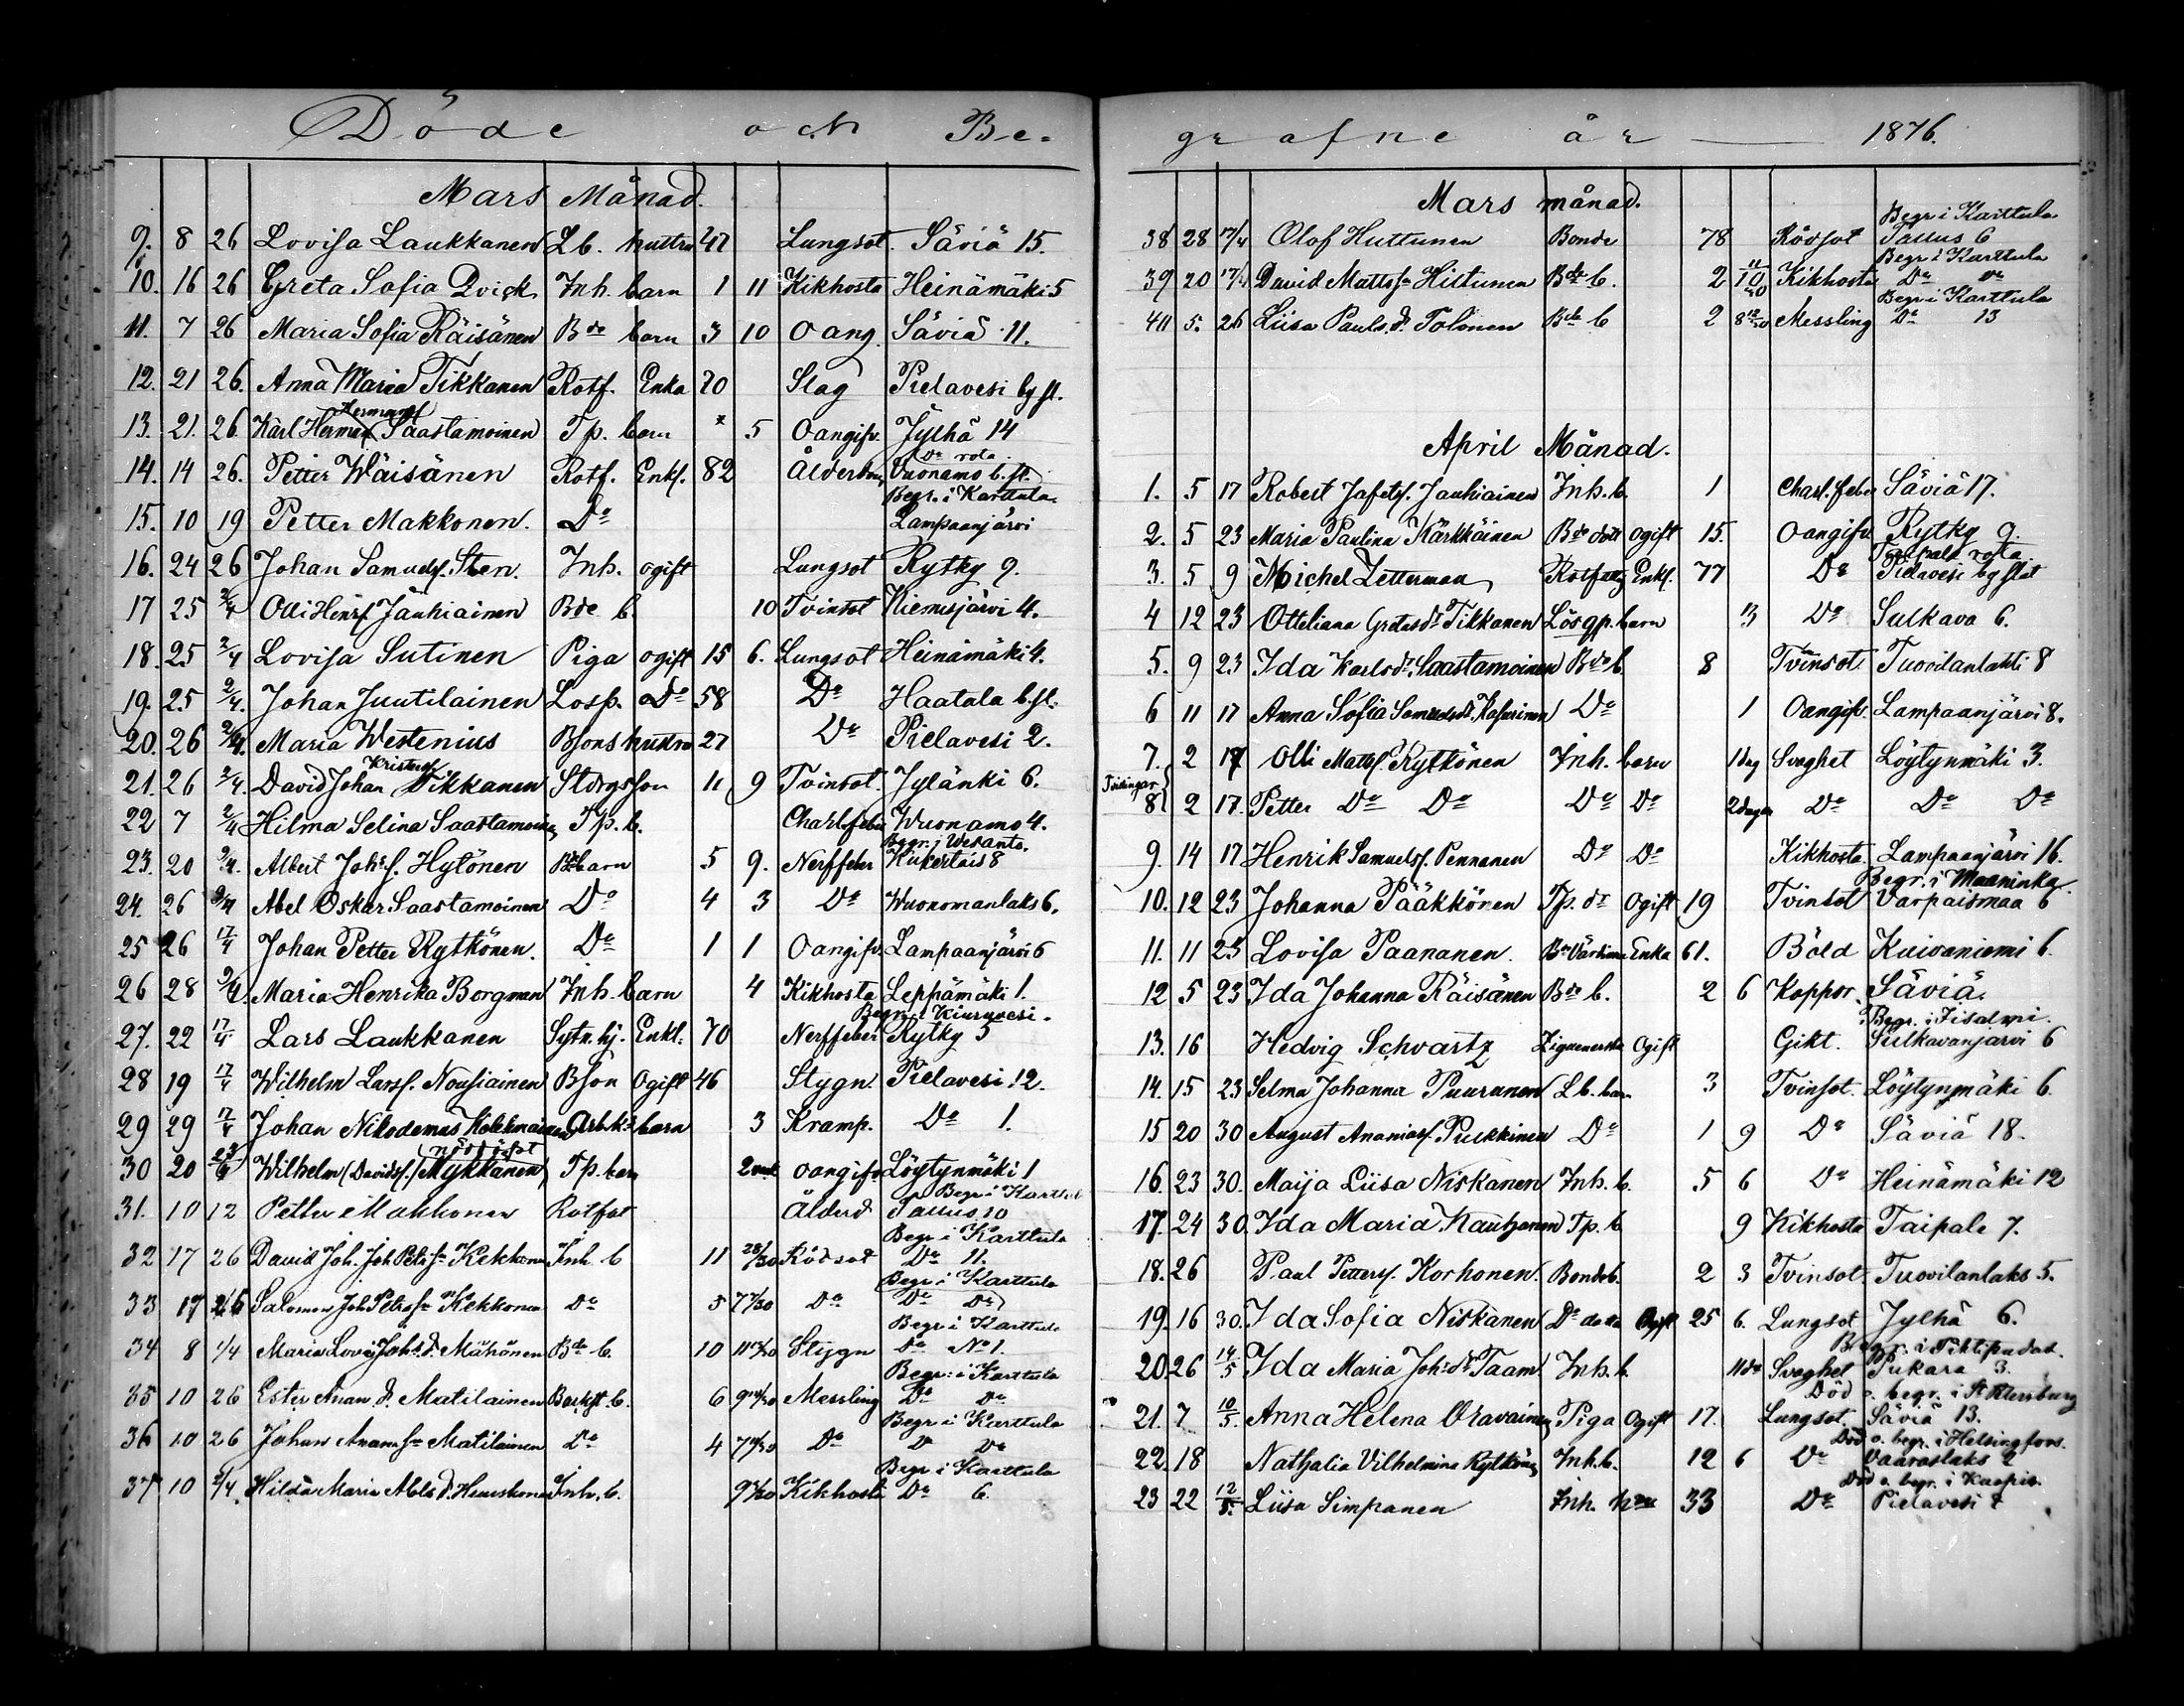 Döde och Be-
Mars Månad.
9. 8 26 Lovisa Laukkanen Lb. hustru 47 Lungsot. Säviä 15.
10. 16 26 Greta Sofia Qvick Inh. barn 1 11 Kikhosta Heinämäki 5
11. 7 26 Maria Sofia Räisänen Bde barn 3 10 Oang. Säviä 11.
12. 21 26. Anna Maria Tikkanen Rotf. Enka 70 Slag Pielavesi by fl.
Hermansf
13. 21. 26. Karl Herman Saastamoinen Tp. barn 5 Oangifv. Jylhä 14
Do rota
14. 14 26. Petter Wäisänen Rotf. Enkl. 82 Ålderdom Vuonamo b. fl.
Begr. i Karttula.
15. 10 19 Petter Makkonen. Do Lampaanjärvi
16. 24 26 Johan Samuelsf. Sten. Inh. ogift Lungsot Rytky 9.
17 25 2/4 Olli Henrsf Jauhiainen Bde b. 10 Tvinsot Kiemisjärvi 4.
18. 25 2/4 Lovisa Sutinen Piga ogift 15 6. Lungsot Heinämäki 4.
19. 25 2/4. Johan Juutilainen Losp. Do 58 Do Haatala b. fl.
20. 26 2/4. Maria Westenius Bsons hustru 27 Do Pielavesi 2.
Kristersf
21. 26 2/4. David Johan Tikkanen Stdrgs son 11 9 Tvinsot. Jylänki 6.
22 7 2/4 Hilma Selina Saastamoinen Tp. b. Charl. feber Wuonamo 4.
Begr. i Wesanto.
23. 20 2/4. Albert Johsf. Hytönen Bde barn 5 9. Nerffeber Kukertais 8
24. 26 2/4 Abel Oskar Saastamoinen Do 4 3 Do Wuonomanlaks 6.
25 26 17/4 Johan Petter Rytkönen. Do 1 1 Oangifv. Lampaanjärvi 6
26 28 2/4. Maria Henrika Borgman Inh. barn 4 Kikhosta Leppämäki 1.
Begr. i Kiuruvesi.
27. 22 17/4 Lars Laukkanen Sytn. hj. Enkl. 70 Nerffeber Rytky 5
28 19 17/4 Wilhelm Larsf. Nousiainen Bson Ogift 46 Stygn. Pielavesi 12.
29 29 17/4 Johan Nikodemus Kolehmainen Arb.ks barn 3 Kramp. Do 1.
nöddöpt
30 20 23/4 Wilhelm (Davidsf.) Mykkänen Tp. barn 2 oangifv Löytynmäki 1
Begr i Karttula
31. 10 12 Petter Makkonen Rotfat Ålderd Tallus 10
Begr i Karttula
32 17 26 David Joh. Joh Petsf Kekkonen Inh b 11 28/30 Rödsot Do 11.
Begr i Karttula
33 17 26 Salomon Joh Petrsf Kekkonen Do 5 7 7/30 Do Do Do
Begr i Karttula
34 8 1/4 Maria Lovi Johs d. Mähönen Bde b. 10 Stygn Do No 1.
Begr: i Karttula
35 10 26 Ester Anan d. Matilainen Backst b. 6 Messling Do Do
Begr i Karttula
36 10 26 Johan Anansf Matilainen Do 4 Do D Do
Begr i Karttula
37 10 2/4. Hilda Maria Abels d. Heiskanen Inh. b. Kikhosta Do 6.
grafne år 1876.
Mars månad.
Begr i Karttula
38 28 17/4 Olof Huttunen Bonde 78 Rödsot Tallus 6
Begr i Karttula
39 20 17/4 David Mattssn Hiltunen Bde b. 2 Kikhosta Do Do
Begr i Karttula
40 5. 26 Liisa Pauls. d. Tolonen Bde b 2 Messling Do 13
April Månad.
1. 5 17 Robert Jafetsf. Jauhiainen Inh. b. 1 Charl. feber Säviä 17.
2. 5 23 Maria Paulina Kärkkäinen Bde dott Ogift 15. Oangifv. Rytky 9.
Taipale rota
3. 5 9 Michel Zetterman Rotfattig Enkl. 77 Do Pielavesi by flat
4 12 23 Otteliana Gretasdr Tikkanen Lösqp. barn 3 Do Sulkava 6.
5. 9 23 Ida Karlsdr. Saastamoinen Bde b. 8 Tvinsot. Tuovilanlahti 8
6 11 17 Anna Sofia Samuelsdr. Kasurinen Do 1 Oangifv. Lampaanjärvi 8.
7. 2 17 Olli Mattsf. Rytkönen Inh. barn 1 dag Svaghet Löytynmäki 3.
Tvillingar
8 2 17. Petter Do Do Do Do 2 dagar Do Do Do
9. 14 17 Henrik Samuelsf. Pennanen Do Do Kikhosta. Lampaanjärvi 16.
Begr. i Maaninka.
10. 12 23 Johanna Pääkkönen Tp. dr Ogift 19 Tvinsot Varpaismaa 6
11. 11 23 Lovisa Paananen. Bde Värdinna Enka 61. Böld Kuivaniemi 6.
12 5 23 Ida Johanna Räisänen Bde b. 2 6 Koppor. Säviä.
Begr. i Iisalmi.
13. 16 Hedvig Schvartz Ziguenerska Ogift Gikt. Sulkavanjärvi 6
14. 15 23 Selma Johanna Puuranen Lb. barn 3 Tvinsot. Löytynmäki 6.
15 20 30 August Ananiasf. Pulkkinen Do 1 9 Do Säviä 18.
16. 23 30. Maija Liisa Niskanen Inh. b. 5 6 Do Heinämäki 12
17. 24 30. Ida Maria Kautzonen Tp. b 9 Kikhosta Taipale 7.
18. 26 Paul Pettersf. Korhonen. Bondeb. 2 3 Tvinsot. Tuovilanlaks 5.
19. 16 30. Ida Sofia Niskanen Do Ogift 25 6. Lungsot Jylhä 6.
Begr. i Pihtipudas.
20 26 14/5 Ida Maria Joh:dr Taam. Inh. b. Svaghet Pukara 3.
Död o. begr. i St Petersburg
21. 7 10/5. Anna Helena Oravainen Piga Ogift 17. Lungsot. Säviä 13.
Död o. begr. i Helsingfors.
22. 18 Nathalia Vilhelmina Rytkönen Inh. b. 12 6 Do Vaaraslaks 2
Död o. begr. i Kuopio.
23 22 12/5. Liisa Simpanen Inh. h 33 Do Pielavesi